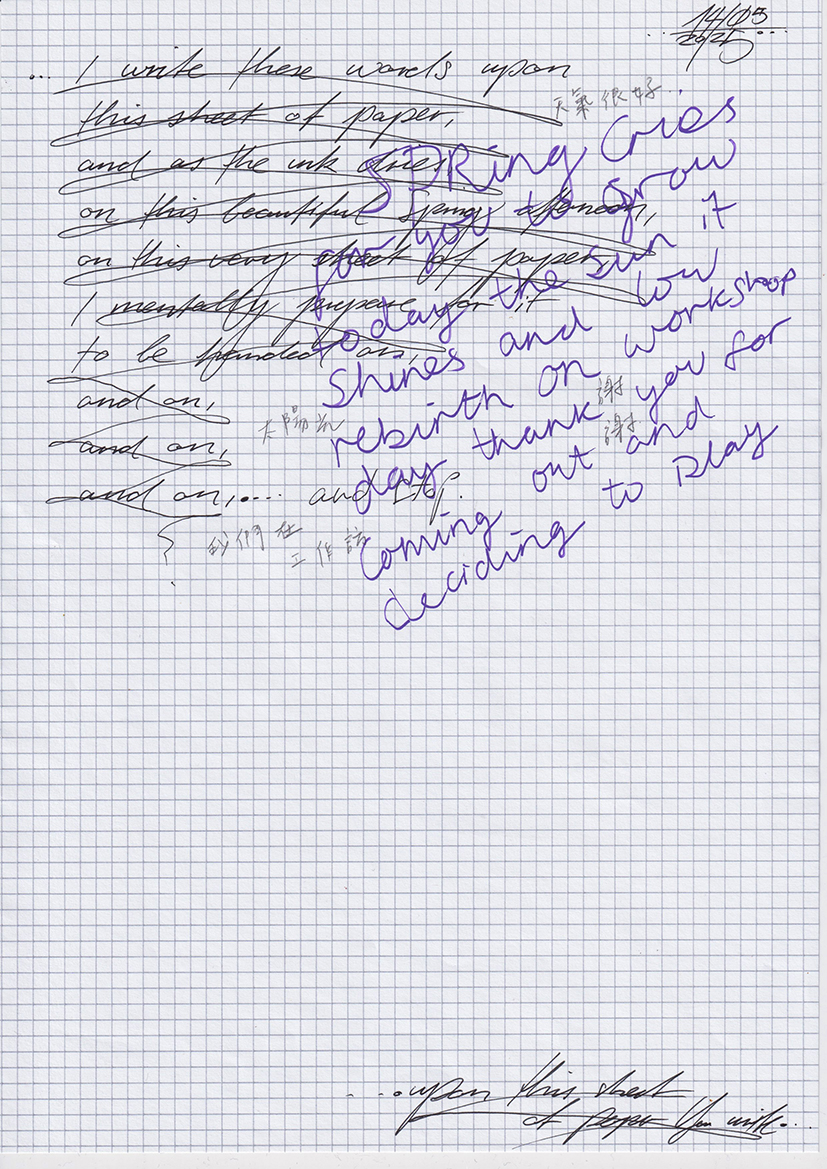 14/05
2025
... I write these words upon
this sheet of paper,
and as the ink dries
on this beautiful spring afternoon,
on this very sheet of paper
I mentally prepare for it
to be handed on,
and on,
and on,
and on, .... and
天氣很好...
SPRing Cries
for you to grow
today the sun it
shines and low
rebirth on workshop
day thank you for
coming out and
deciding to play
謝
謝
太陽
我們在
工作
....upon this sheet
of paper You write...